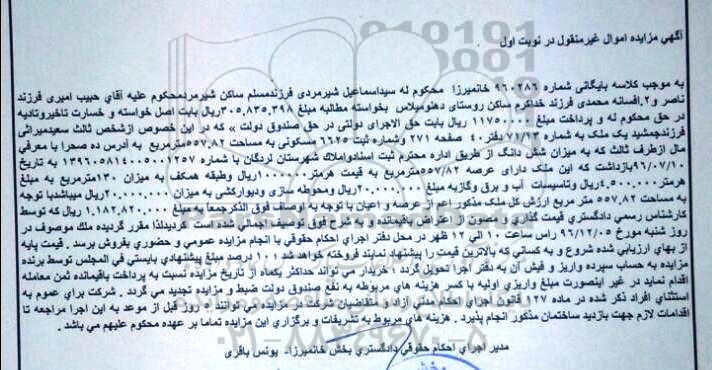 آگهی مزایده اموال غیرمنقول در نوبت اول
به موجب کلاسه بایگانی شماره ۹۶۰۲۸۶ خانمیرزا محکوم له سیداسماعیل شیرمردی فرزندمسلم ساکن شیرمردمحکوم علیه آقای حبیب امیری فرزند
ناصر و۲.افسانه محمدی فرزند خداکرم ساکن روستای دهنومیلاس بخواسته مطالبه مبلغ ۳۰۵.۸۳۵.۳۹۸ریال بابت اصل خواسته و خسارت تاخیروتادیه
در حق محکوم له و پرداخت مبلغ ۱۱۷۵۰۰۰۰ ریال بابت حق الاجرای دولتی در حق صندوق دولت » که در این خصوص ازشخص ثالث سعیدمیرائی
فرزندجمشید یک ملک به شماره ۷۱/۱۳ دفتر۴۰ صفحه ۲۷۱ وشماره ثبت ۶۶۲۵ مسکونی به مساحت ۵۵۷.۸۲مترمربع به آدرس ده صحرا با معرفی
مال ازطرف ثالث که به میزان شش دانگ از طریق اداره محترم ثبت اسنادواملاک شهرستان لردگان با شماره ۱۳۹۶۰۵۸۱۴۰۰۵۰۰۱۲۵۷ به تاریخ
۹۶/۰۷/۱۰بازداشت که این ملک دارای عرصه ۵۵۷/۸۲مترمربع به قیمت هرمتر ۱۰۰۰۰۰۰ریال وطبقه همکف به میزان ۱۳۰مترمربع به مبلغ
هرمتر۴.۵۰۰.۰۰۰ریال وتاسیسات آب و برق وگازبه مبلغ ۲۰.۰۰۰.۰۰۰ریال ومحوطه سازی ودیوارکشی به میزان ۲۰.۰۰۰.۰۰۰ریال میباشدبا توجه
به مساحت ۵۵۷.۸۲ متر مربع ارزش کل ملک مذکور اعم از عرصه و اعیان با توجه به اوصاف فوق الذکرجمعا به مبلغ ۱.۱۸۲.۸۲۰.۰۰۰ ریال که توسط
کارشناس رسمی دادگستری قیمت گذاری و مصون از اعتراض باقیمانده و به شرح فوق توصیف اجمالی شده است گردیدلذا مقرر گردیده ملک موصوف در
روز شنبه مورخ ۹۶/۱۲/۰۵ راس ساعت ۱۰ الی ۱۲ ظهر در محل دفتر اجرای احکام حقوقی با انجام مزایده عمومی و حضوری بفروش برسد . قیمت پایه
از بهای ارزیابی شده شروع و به کسانی که بالاترین قیمت را پیشنهاد نمایند فروخته خواهد شد ۱۰۰ درصد مبلغ پیشنهادی بایستی فی المجلس توسط برنده
مزایده به حساب سپرده واریز و فیش آن به دفتر اجرا تحویل گردد ، خریدار می تواند حداکثر یکماه از تاریخ مزایده نسبت به پرداخت باقیمانده ثمن معامله
اقدام نماید در غیر اینصورت مبلغ واریزی اولیه با کسر هزینه های مربوطه به نفع صندوق دولت ضبط و مزایده تجدید می گردد . شرکت برای عموم به
استثنای افراد ذکر شده در ماده ۱۲۷ قانون اجرای احکام مدنی آزاد و متقاضیان شرکت در مزایده می توانند ۵ روز قبل از موعد به این اجرا مراجعه تا
اقدامات لازم جهت بازدید ساختمان مذکور انجام پذیرد . هزینه های مربوط به تشریفات و برگزاری این مزایده تماما بر عهده محکوم علیهم می باشد .
مدیر اجرای احکام حقوقی دادگستری بخش خانمیرزا- یونس باقری